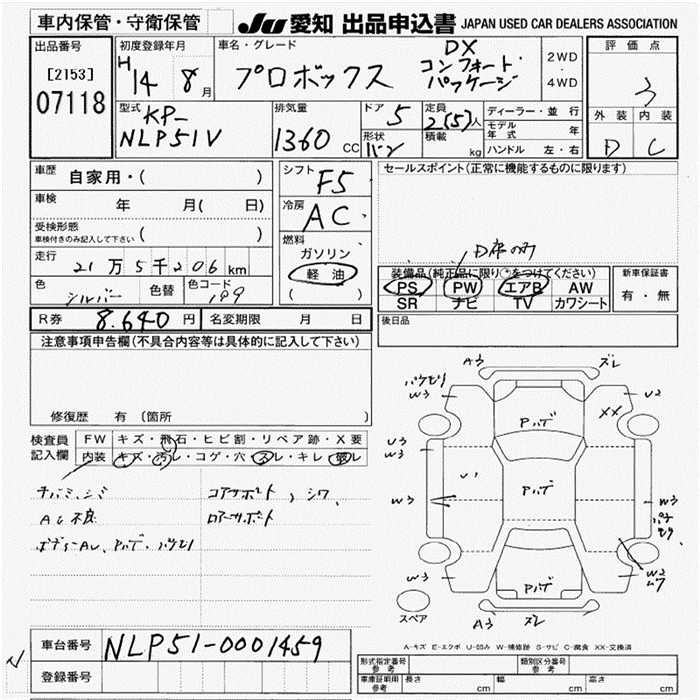 車内保管・守衛保管 JU 愛知 出品申込書 JAPAN USED CAR DEALERS ASSOCIATION
出品番号 初度登録年月 車名・グレード 評価点
[2153] H14 8月 プロボックス DX コンフォート パッケージ 2WD 4WD 3
07118
型式 KP- 排気量 ドア 5 定員 2(5)人 ディーラー・並行 外装 内装
NLP51V 1360 CC 形状 バン 積載 kg モデル年式 年 D C
ハンドル 左・右
車歴 自家用・( ) シフト F5 セールスポイント(正常に機能するものに限ります)
車検 年 月( 日) 冷房 AC
受検形態 ( )
車検付きのみ記入して下さい
燃料 ガソリン
軽油
( )
走行 21万5千206km
装備品(純正品に限り○をつけてください) 新車保証書
色 シルバー 色替 色コード 199 PS PW エアB AW 有・無
SR ナビ TV カワシート
R券 8.640円 名変期限 月 日 後日品
注意事項申告欄(不具合内容等は具体的に記入して下さい)
修復歴 有 (箇所 )
検査員 FW キズ・飛石・ヒビ割・リペア跡・X要
記入欄 内装 キズ・汚レ・コゲ・穴・スレ・キレ・破レ
AC不良
コアサポート、シワ、
ロアーサポート
A3 ズレ
W3 U2
XX
アハゲ
U3
W3
U1
W3 アハゲ W3
W3 アハゲ W2
スペア A3 ズレ
A-キズ E-エクボ U-凹み W-補修跡 S-サビ C-腐食 XX-交換済
車台番号 NLP51-0001459
登録番号
形式指定番号 参考 類別区分番号 参考
車庫証明用 参考 長さ cm 幅 cm 高さ cm